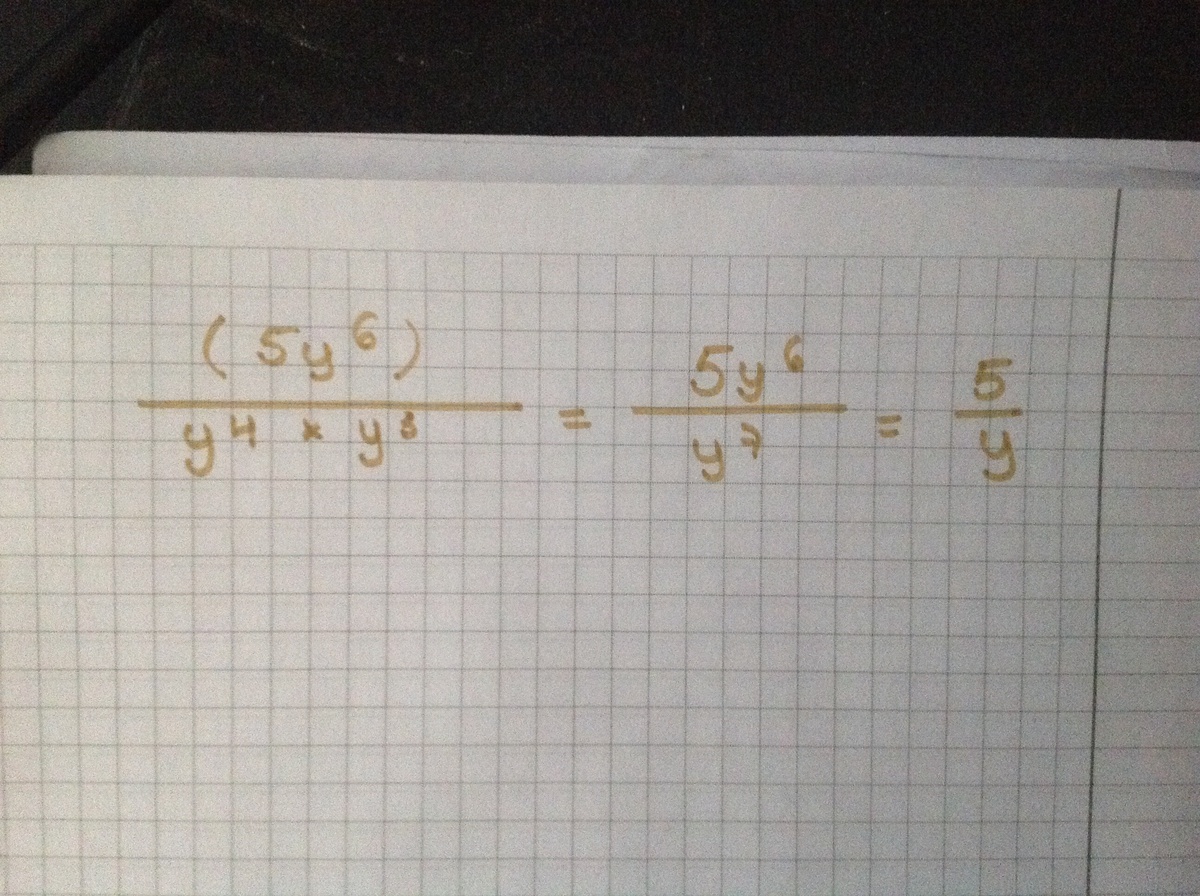 (5y⁶) / y⁴ × y³ = 5y⁶ / y⁷ = 5 / y